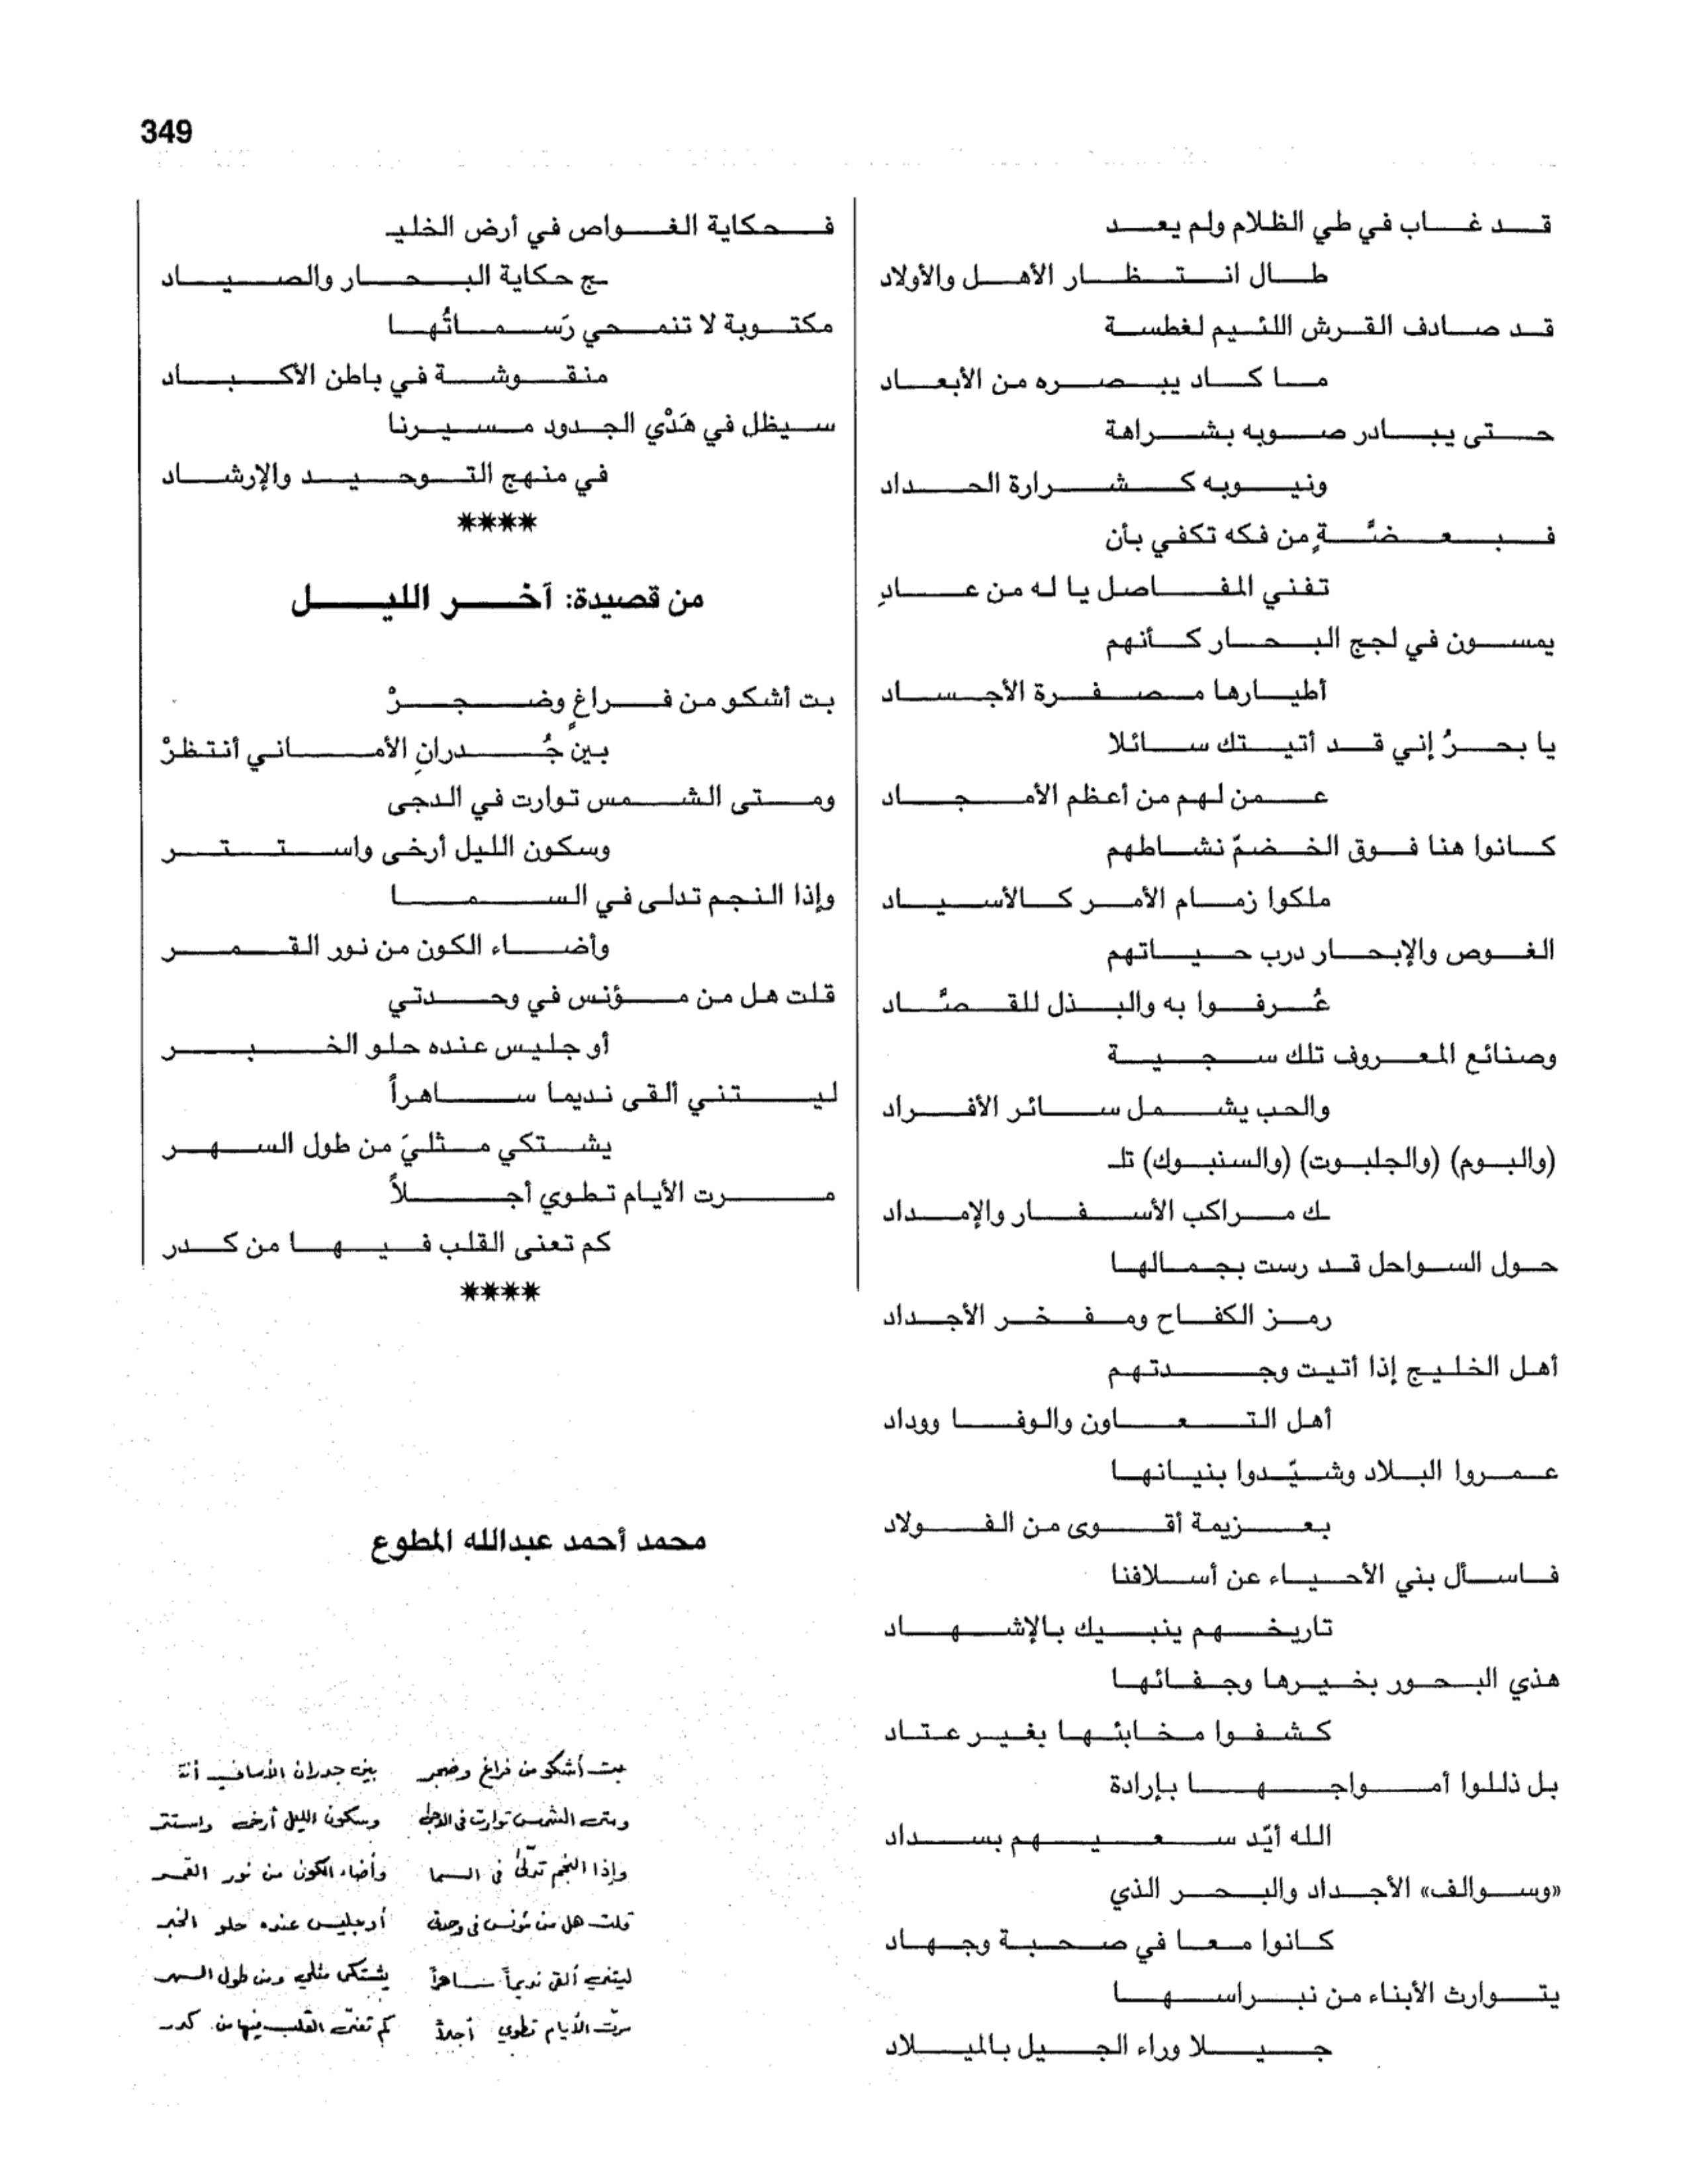 349
قد غاب في طي الظلام ولم يعد
طال انتظار الأهل والأولاد
قد صادف القرش اللئيم لغطسة
ما كاد يبصره من الأبعاد
حتى يبادر صوبه بشراهة
ونيوبه كشرارة الحداد
فبعضَّةٍ من فكه تكفي بأن
تفني المفاصل يا له من عادِ
يمسون في لجج البحار كأنهم
أطيارها مصفرة الأجساد
يا بحرُ إني قد أتيتك سائلا
عمن لهم من أعظم الأمجاد
كانوا هنا فوق الخضمّ نشاطهم
ملكوا زمام الأمر كالأسياد
الغوص والإبحار درب حياتهم
عُرفوا به والبذل للقصَّاد
وصنائع المعروف تلك سجية
والحب يشمل سائر الأفراد
(والبوم) (والجلبوت) (والسنبوك) تلـ
ـك مراكب الأسفار والإمداد
حول السواحل قد رست بجمالها
رمز الكفاح ومفخر الأجداد
أهل الخليج إذا أتيت وجدتهم
أهل التعاون والوفا ووداد
عمروا البلاد وشيّدوا بنيانها
بعزيمة أقوى من الفولاد
فاسأل بني الأحياء عن أسلافنا
تاريخهم ينبيك بالإشهاد
هذي البحور بخيرها وجفائها
كشفوا مخابئها بغير عتاد
بل ذللوا أمواجها بإرادة
الله أيّد سعيهم بسداد
«وسوالف» الأجداد والبحر الذي
كانوا معا في صحبة وجهاد
يتوارث الأبناء من نبراسها
جيلا وراء الجيل بالميلاد
فحكاية الغواص في أرض الخليـ
ـج حكاية البحار والصياد
مكتوبة لا تنمحي رَسماتُها
منقوشة في باطن الأكباد
سيظل في هَدْي الجدود مسيرنا
في منهج التوحيد والإرشاد
****
من قصيدة: آخر الليل
بت أشكو من فراغٍ وضجرْ
بين جُدرانِ الأماني أنتظرْ
ومتى الشمس توارت في الدجى
وسكون الليل أرخى واستتر
وإذا النجم تدلى في السما
وأضاء الكون من نور القمر
قلت هل من مؤنس في وحدتي
أو جليس عنده حلو الخبر
ليتني ألقى نديما ساهراً
يشتكي مثليَ من طول السهر
مرت الأيام تطوي أجلاً
كم تعنى القلب فيها من كدر
****
محمد أحمد عبدالله المطوع
بت أشكو من فراغ وضجر بين جدران الأماني أنتـ
ومتى الشمس توارت في الدجى وسكون الليل أرخى واستتر
وإذا النجم تدلّى في السما وأضاء الكون من نور القمر
قلت هل من مؤنس في وحدتي أو جليس عنده حلو الخبر
ليتني ألقى نديماً ساهراً يشتكي مثلي من طول السهر
مرّت الأيام تطوي أجلاً كم تعنّى القلب فيها من كدر